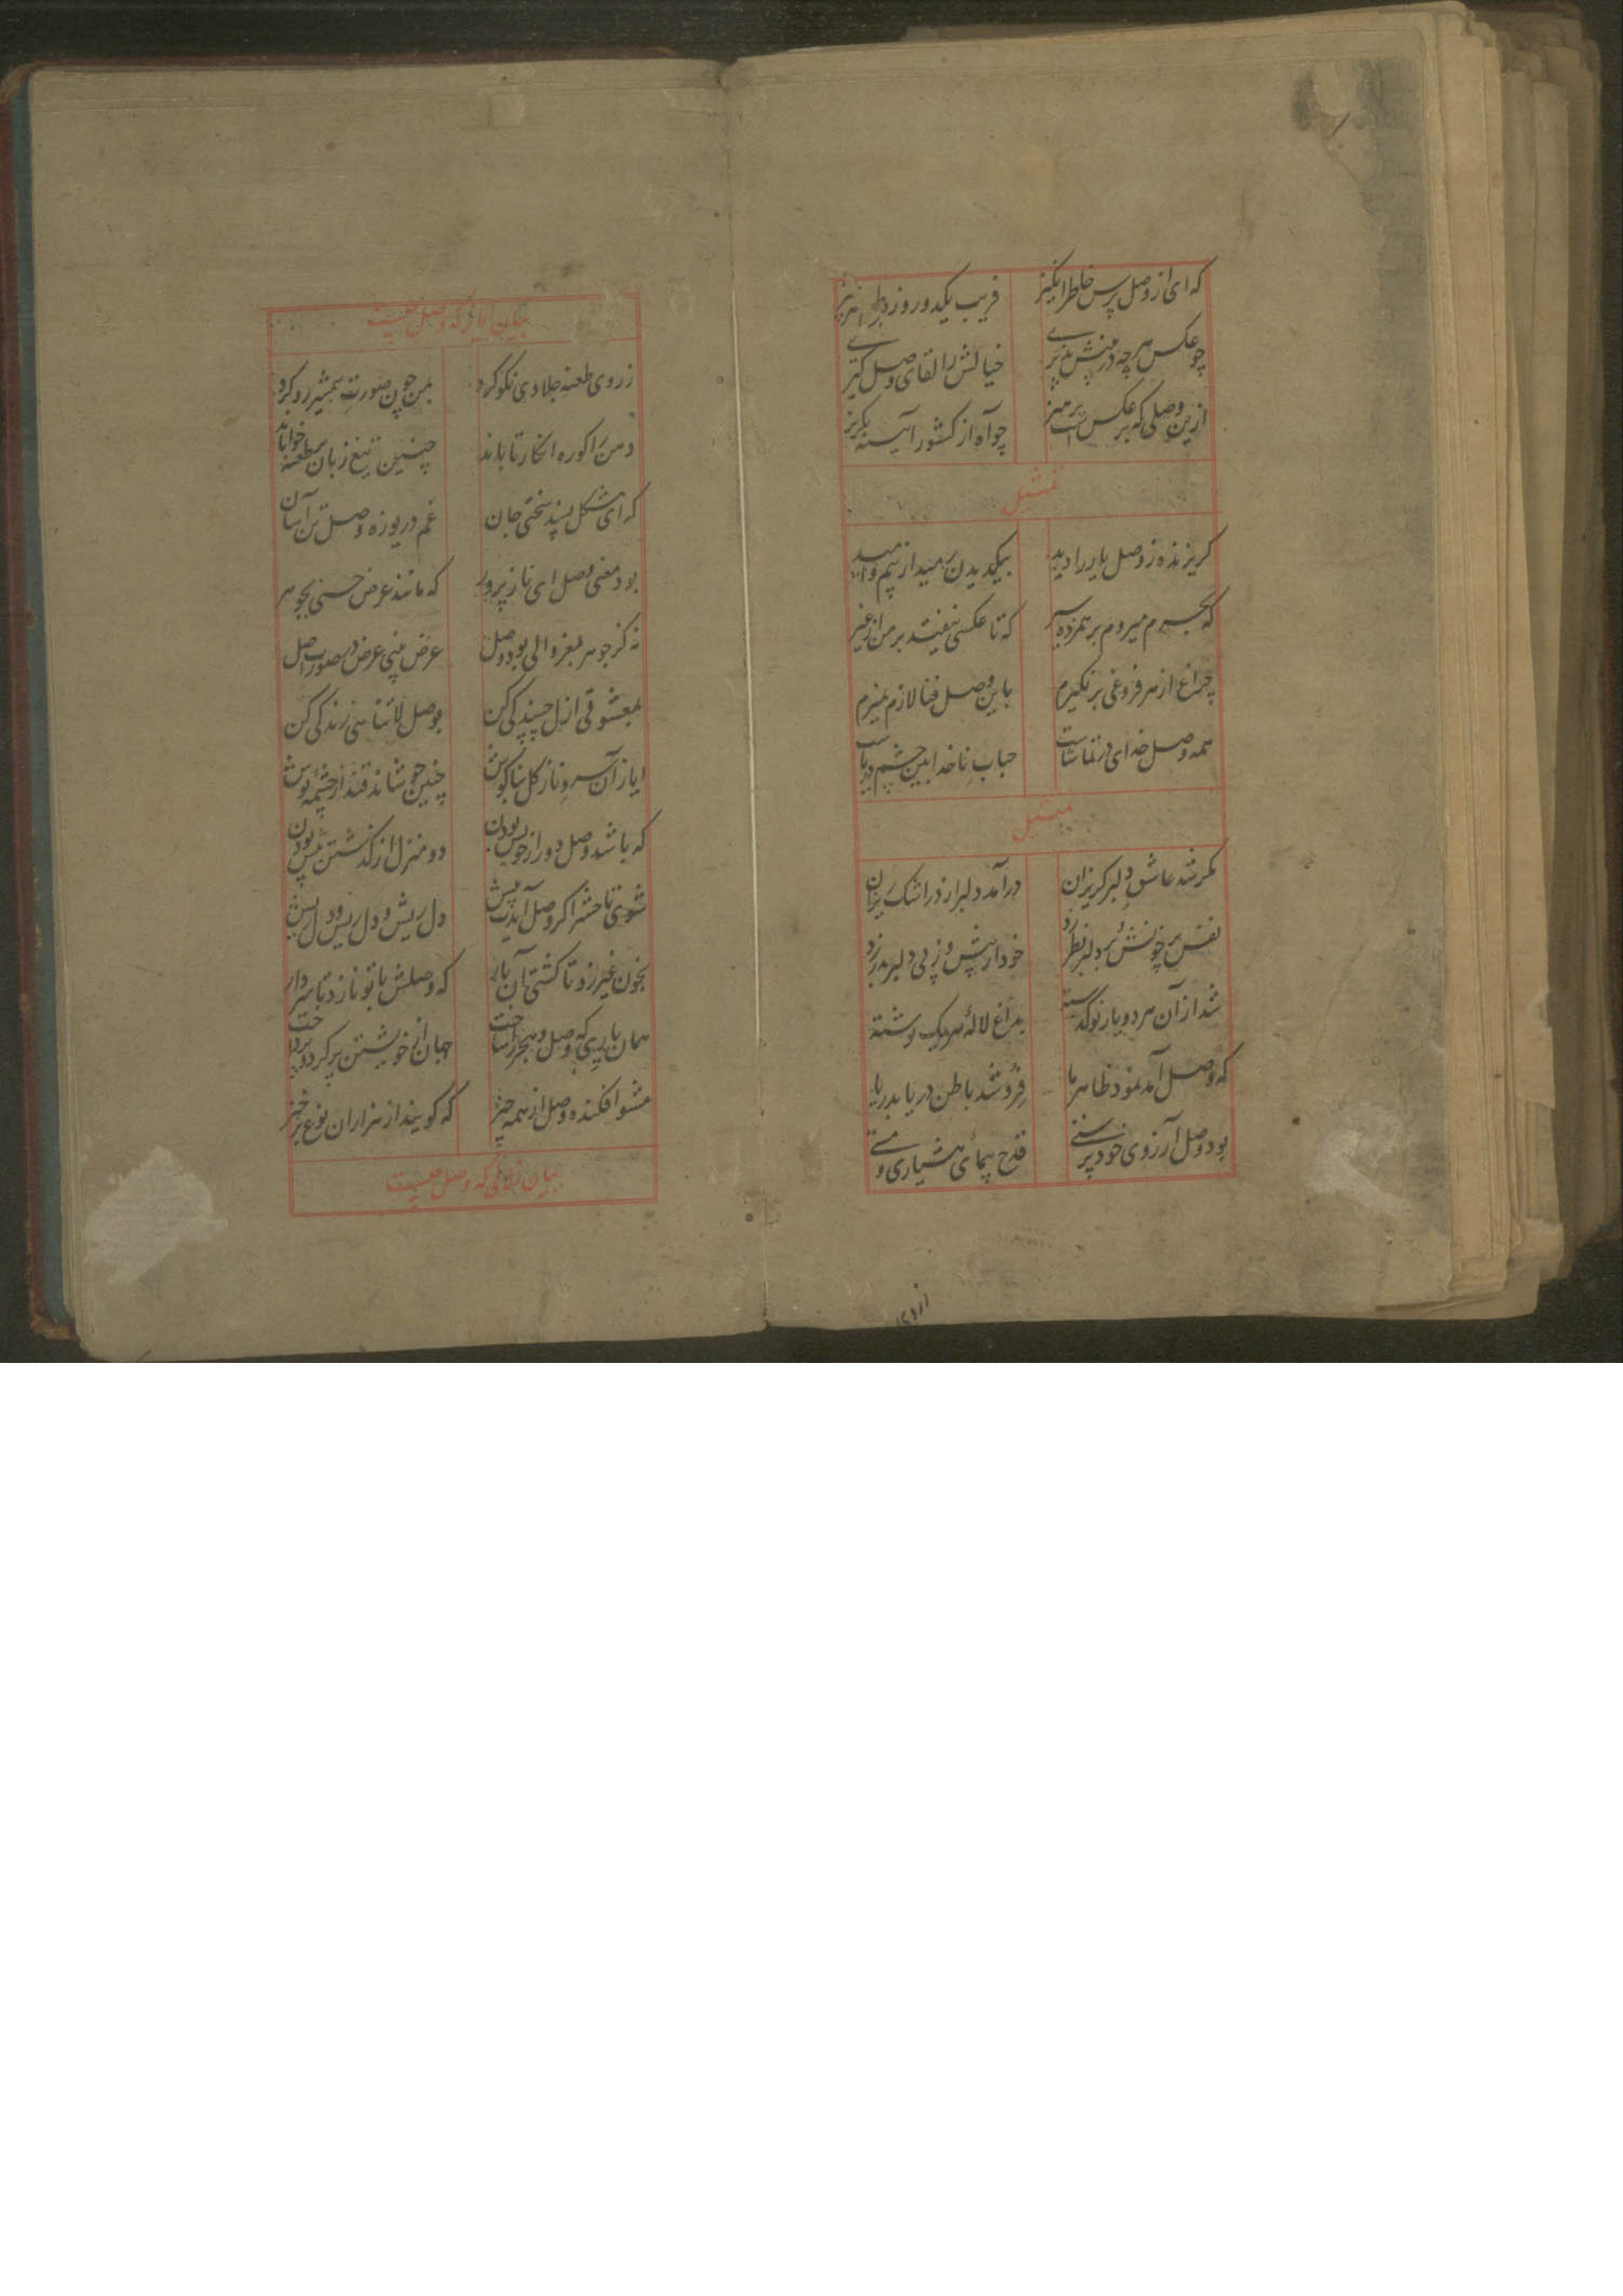 که ای از وصل پرس خاطرانگیز فریب یکدو روز
چو عکس هر چه در پیش خیالش را لقای وصل
ازین وصلی که بر عکس است چو آه از کشور آئینه بگریز
تمثیل
گریزنده ز وصل یار را دید بیکدیدن رمید از بیم و امید
که میروم بر همزده سیر که تا عکسی نیفتد بر من از غیر
چراغ از هر فروغی بر نگیرم باین وصل فنا لازم بمیرم
همه وصل خدای در تماشاست حباب ناخدابین چشم دریاست
تمثیل
مگر شد عاشق و دلبر گریزان درآمد دلبر از در اشک ریزان
نفس بر خونش و بر دلبر نظر زد خود از پیش و ز پی دلبر بدر زد
شد از آن هر دو یار نوگسسته بداغ لاله هر یک
که وصل آمد نمود ظاهر ما فروشد باطن دریا بدریا
بود وصل آرزوی خودپرستی قدح پیمای هشیاری و مستی
از روی
بیان ایاز که وصل چیست
ز روی طعنه جلادی نکو کرد بمن چون صورت شمشیر رو کرد
دمن را کوره انکار تاباند چنین تیغ زبان بر طعنه خواباند
که ای مشکل پسند سختی جان غم دریوزه وصل تن آسان
بود معنی وصل ای ناز پرور که مانند عرض حسنی بجوهر
نه کز جوهر بود وصل عرض بینی عرض در صورت اصل
بمعشوقی ازل چسپندگی کن بوصل لاتناهی زندگی کن
ایاز آن سرو ناز گل بناگوش چنین جوشاند قند از چشمه نوش
که باشد وصل دور از خویش بودن دو منزل از گذشتن پیش بودن
شوی تا حشر اگر وصل آیدت پیش دل ریش و دل ریش و دل ریش
بخون غیر زد تا کشتی آن یار که وصلش با تو نازد تا سر دار
همان یاری که وصل و هجر را ساخت جهان از خویشتن پر کرد و پرداخت
مشو افکنده وصل از همه چیز که گویند از هزاران نوع برخیز
بیان زلالی که وصل چیست